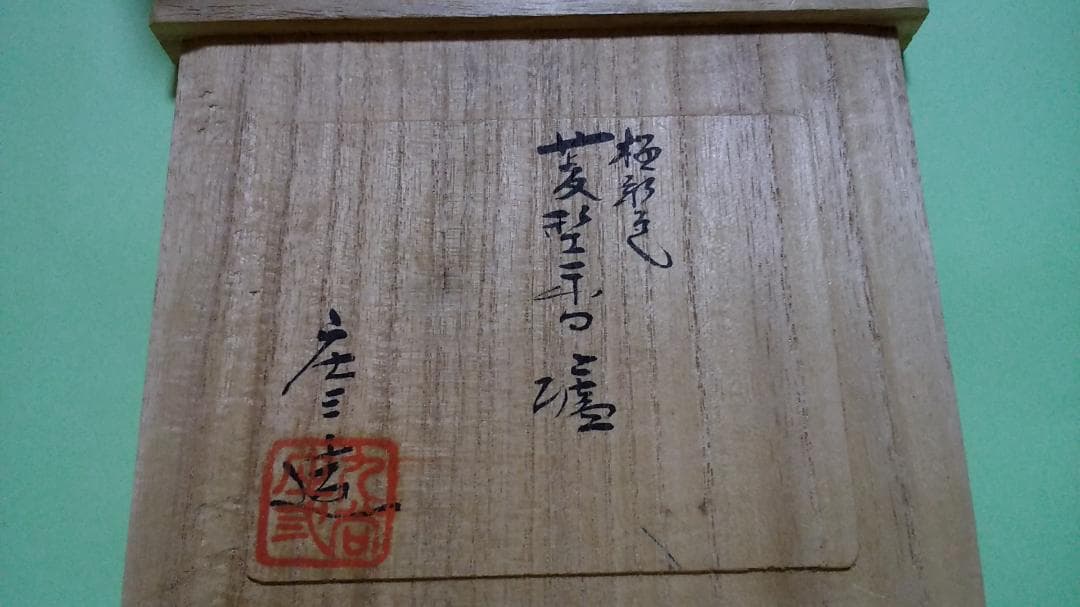 極彩色
菱型香爐
庄三造
九谷